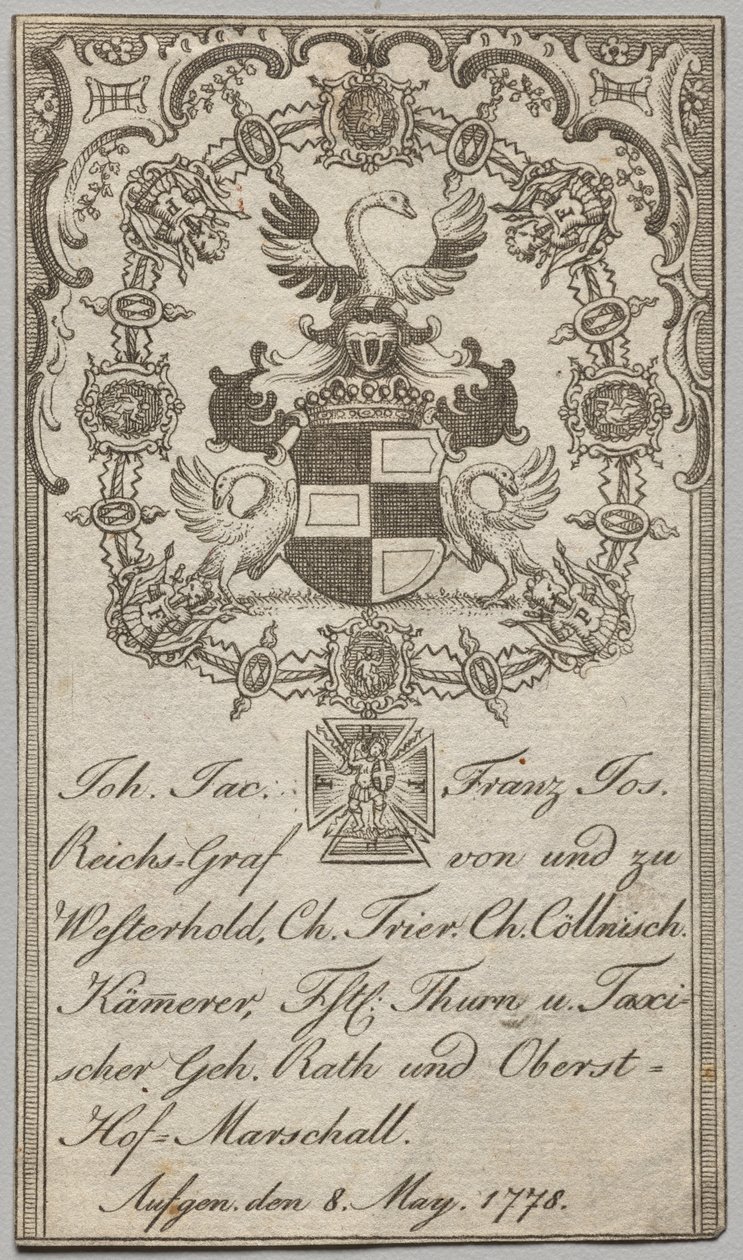 Joh. Jac. Franz Jos.
Reichs=Graf von und zu
Weſterhold, Ch. Trier. Ch. Cöllnisch.
Kām̄erer, Fſtl: Thurn u. Taxi=
scher Geh. Rath und Oberst=
Hof=Marschall.
Aufgen. den 8. May. 1778.